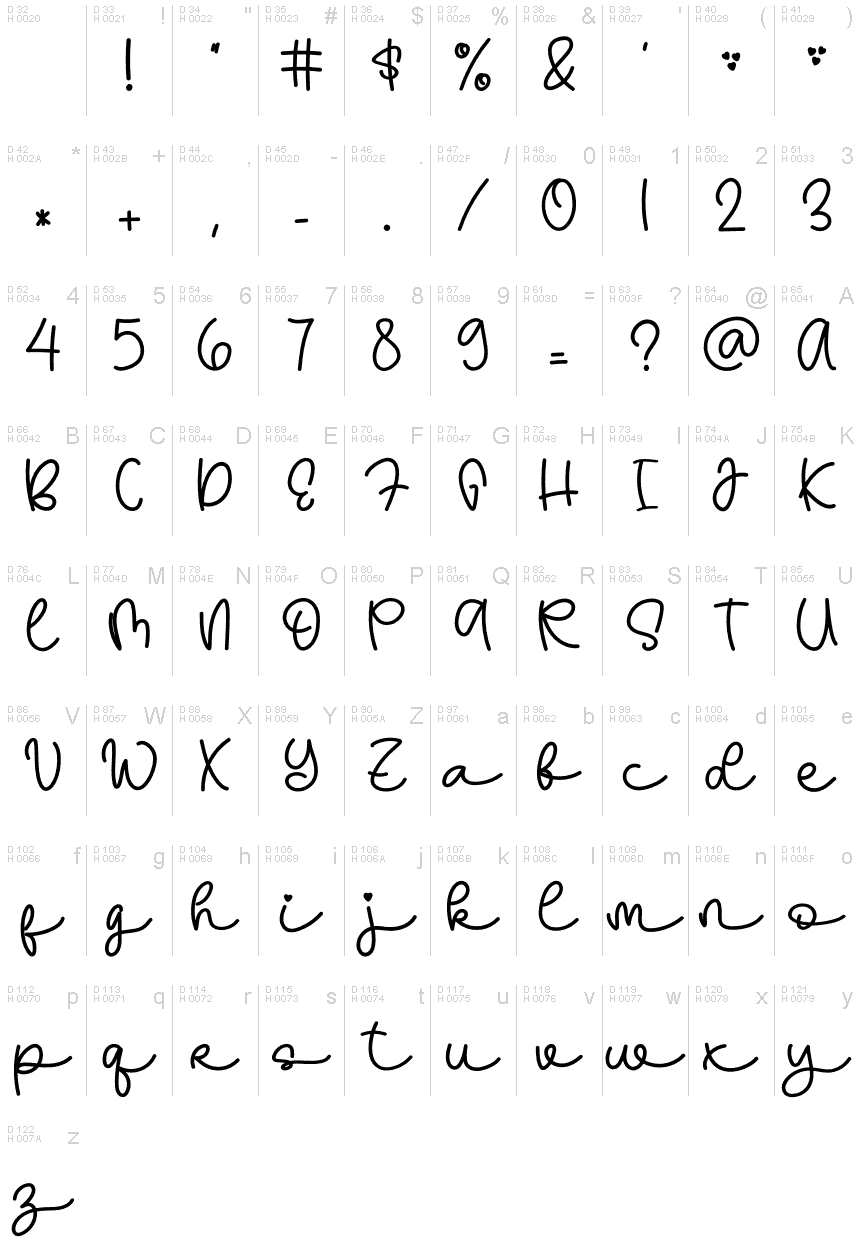 D 32 D 33 ! D 34 " D 35 # D 36 $ D 37 % D 38 & D 39 ' D 40 ( D 41 )
H 0020 H 0021 H 0022 H 0023 H 0024 H 0025 H 0026 H 0027 H 0028 H 0029
! " # $ % & '
D 42 * D 43 + D 44 , D 45 - D 46 . D 47 / D 48 0 D 49 1 D 50 2 D 51 3
H 002A H 002B H 002C H 002D H 002E H 002F H 0030 H 0031 H 0032 H 0033
* + , - . / 0 1 2 3
D 52 4 D 53 5 D 54 6 D 55 7 D 56 8 D 57 9 D 61 = D 63 ? D 64 @ D 65 A
H 0034 H 0035 H 0036 H 0037 H 0038 H 0039 H 003D H 003F H 0040 H 0041
4 5 6 7 8 9 = ? @ A
D 66 B D 67 C D 68 D D 69 E D 70 F D 71 G D 72 H D 73 I D 74 J D 75 K
H 0042 H 0043 H 0044 H 0045 H 0046 H 0047 H 0048 H 0049 H 004A H 004B
B C D E F G H I J K
D 76 L D 77 M D 78 N D 79 O D 80 P D 81 Q D 82 R D 83 S D 84 T D 85 U
H 004C H 004D H 004E H 004F H 0050 H 0051 H 0052 H 0053 H 0054 H 0055
L M N O P Q R S T U
D 86 V D 87 W D 88 X D 89 Y D 90 Z D 97 a D 98 b D 99 c D 100 d D 101 e
H 0056 H 0057 H 0058 H 0059 H 005A H 0061 H 0062 H 0063 H 0064 H 0065
V W X Y Z a b c d e
D 102 f D 103 g D 104 h D 105 i D 106 j D 107 k D 108 l D 109 m D 110 n D 111 o
H 0066 H 0067 H 0068 H 0069 H 006A H 006B H 006C H 006D H 006E H 006F
f g h i j k l m n o
D 112 p D 113 q D 114 r D 115 s D 116 t D 117 u D 118 v D 119 w D 120 x D 121 y
H 0070 H 0071 H 0072 H 0073 H 0074 H 0075 H 0076 H 0077 H 0078 H 0079
p q r s t u v w x y
D 122 z
H 007A
z